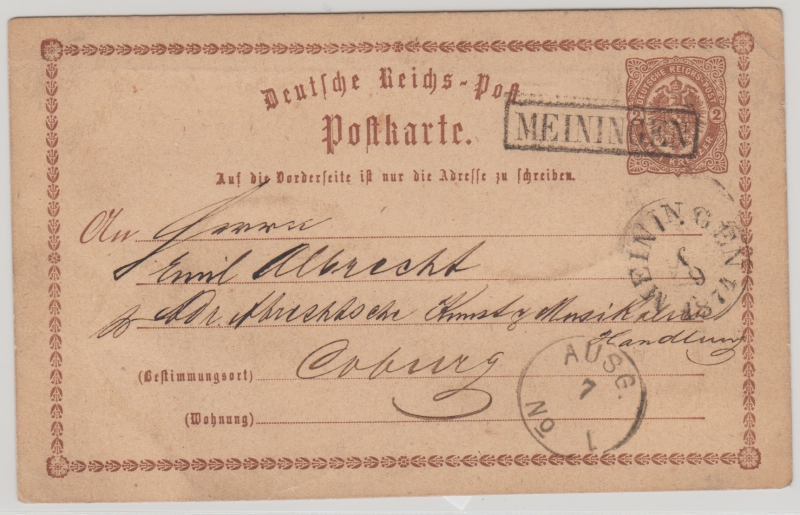 Deutsche Reichs-Post
Postkarte.
DEUTSCHE REICHS-POST
2 2
KREUZER
MEININGEN
Auf die Vorderseite ist nur die Adresse zu schreiben.
MEININGEN
1874
An Herrn
Emil Albrecht
Adr. Albrechtsche Kunst & Musikalien
Handlung
(Bestimmungsort) Coburg
(Wohnung)
AUSG.
7
1
No